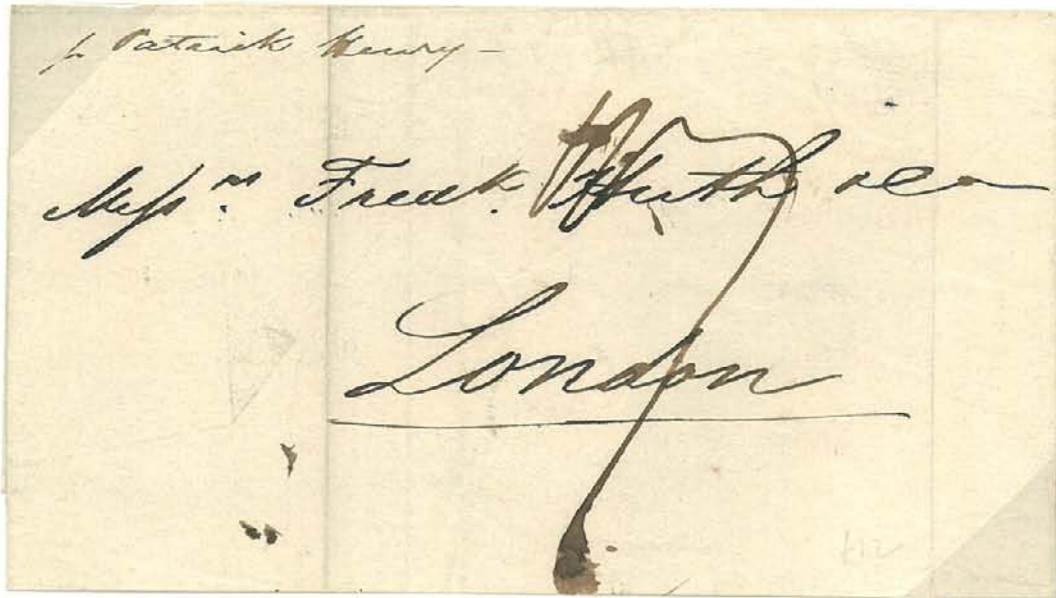 p Patrick Henry -
Messrs Fredk. Huth & Co
London